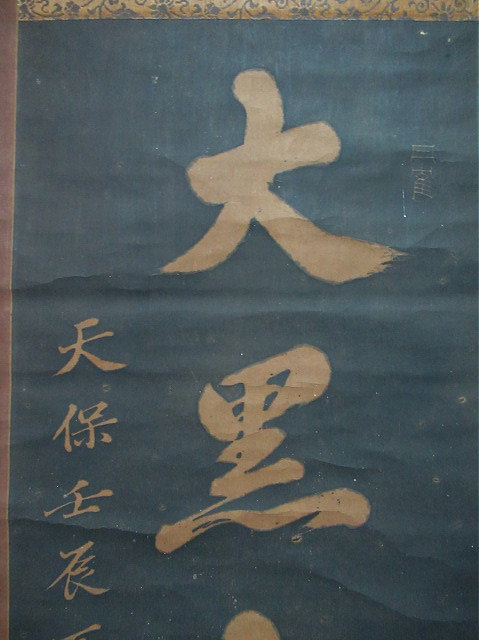 大黒
天保壬辰